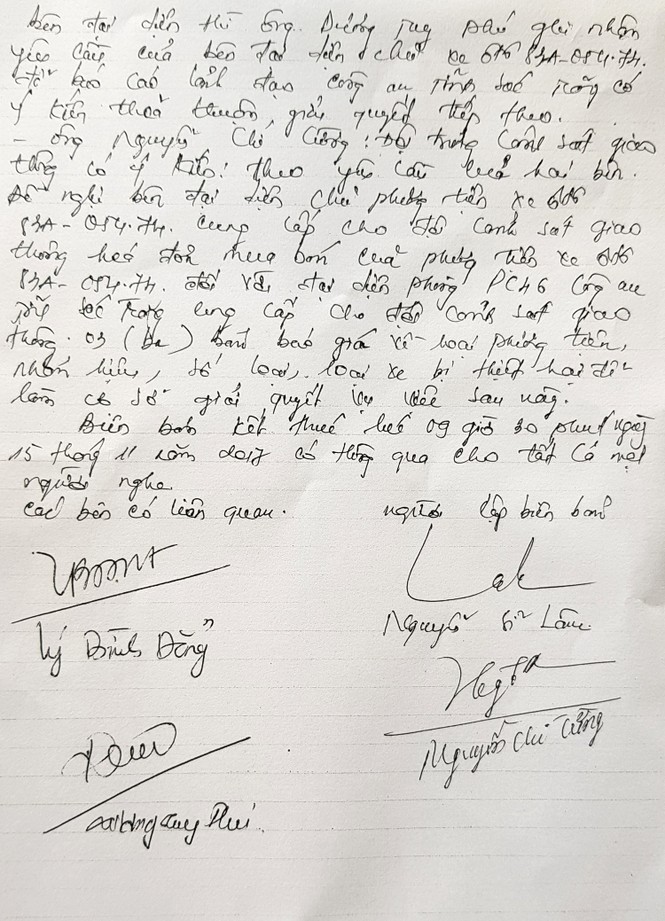 bên đại diện thì ông. Dương Duy Phú ghi nhận
yêu cầu của bên đại diện chủ xe ôtô 83A-054.74.
để báo cáo lãnh đạo công an tỉnh Sóc Trăng có
ý kiến thoả thuận, giải quyết tiếp theo.
- ông Nguyễn Chí Cường: Đội trưởng Cảnh sát giao
thông có ý kiến: theo yêu cầu của hai bên.
Đề nghị bên đại diện chủ phương tiện xe ôtô
83A-054.74. cung cấp cho đội cảnh sát giao
thông hoá đơn mua bán của phương tiện xe ôtô
83A-054.74. đối với đại diện phòng PC46 công an
tỉnh Sóc Trăng cung cấp cho đội cảnh sát giao
thông. 03 (ba) bảng báo giá về loại phương tiện,
nhãn hiệu, số loại, loại xe bị thiệt hại để
làm cơ sở giải quyết vụ việc sau này.
Biên bản kết thúc lúc 09 giờ 30 phút ngày
15 tháng 11 năm 2017 có thông qua cho tất cả mọi
người nghe.
các bên có liên quan. người lập biên bản
Lý Bình Đẳng
Nguyễn Lâm
Nguyễn Chí Cường
Dương Duy Phú.